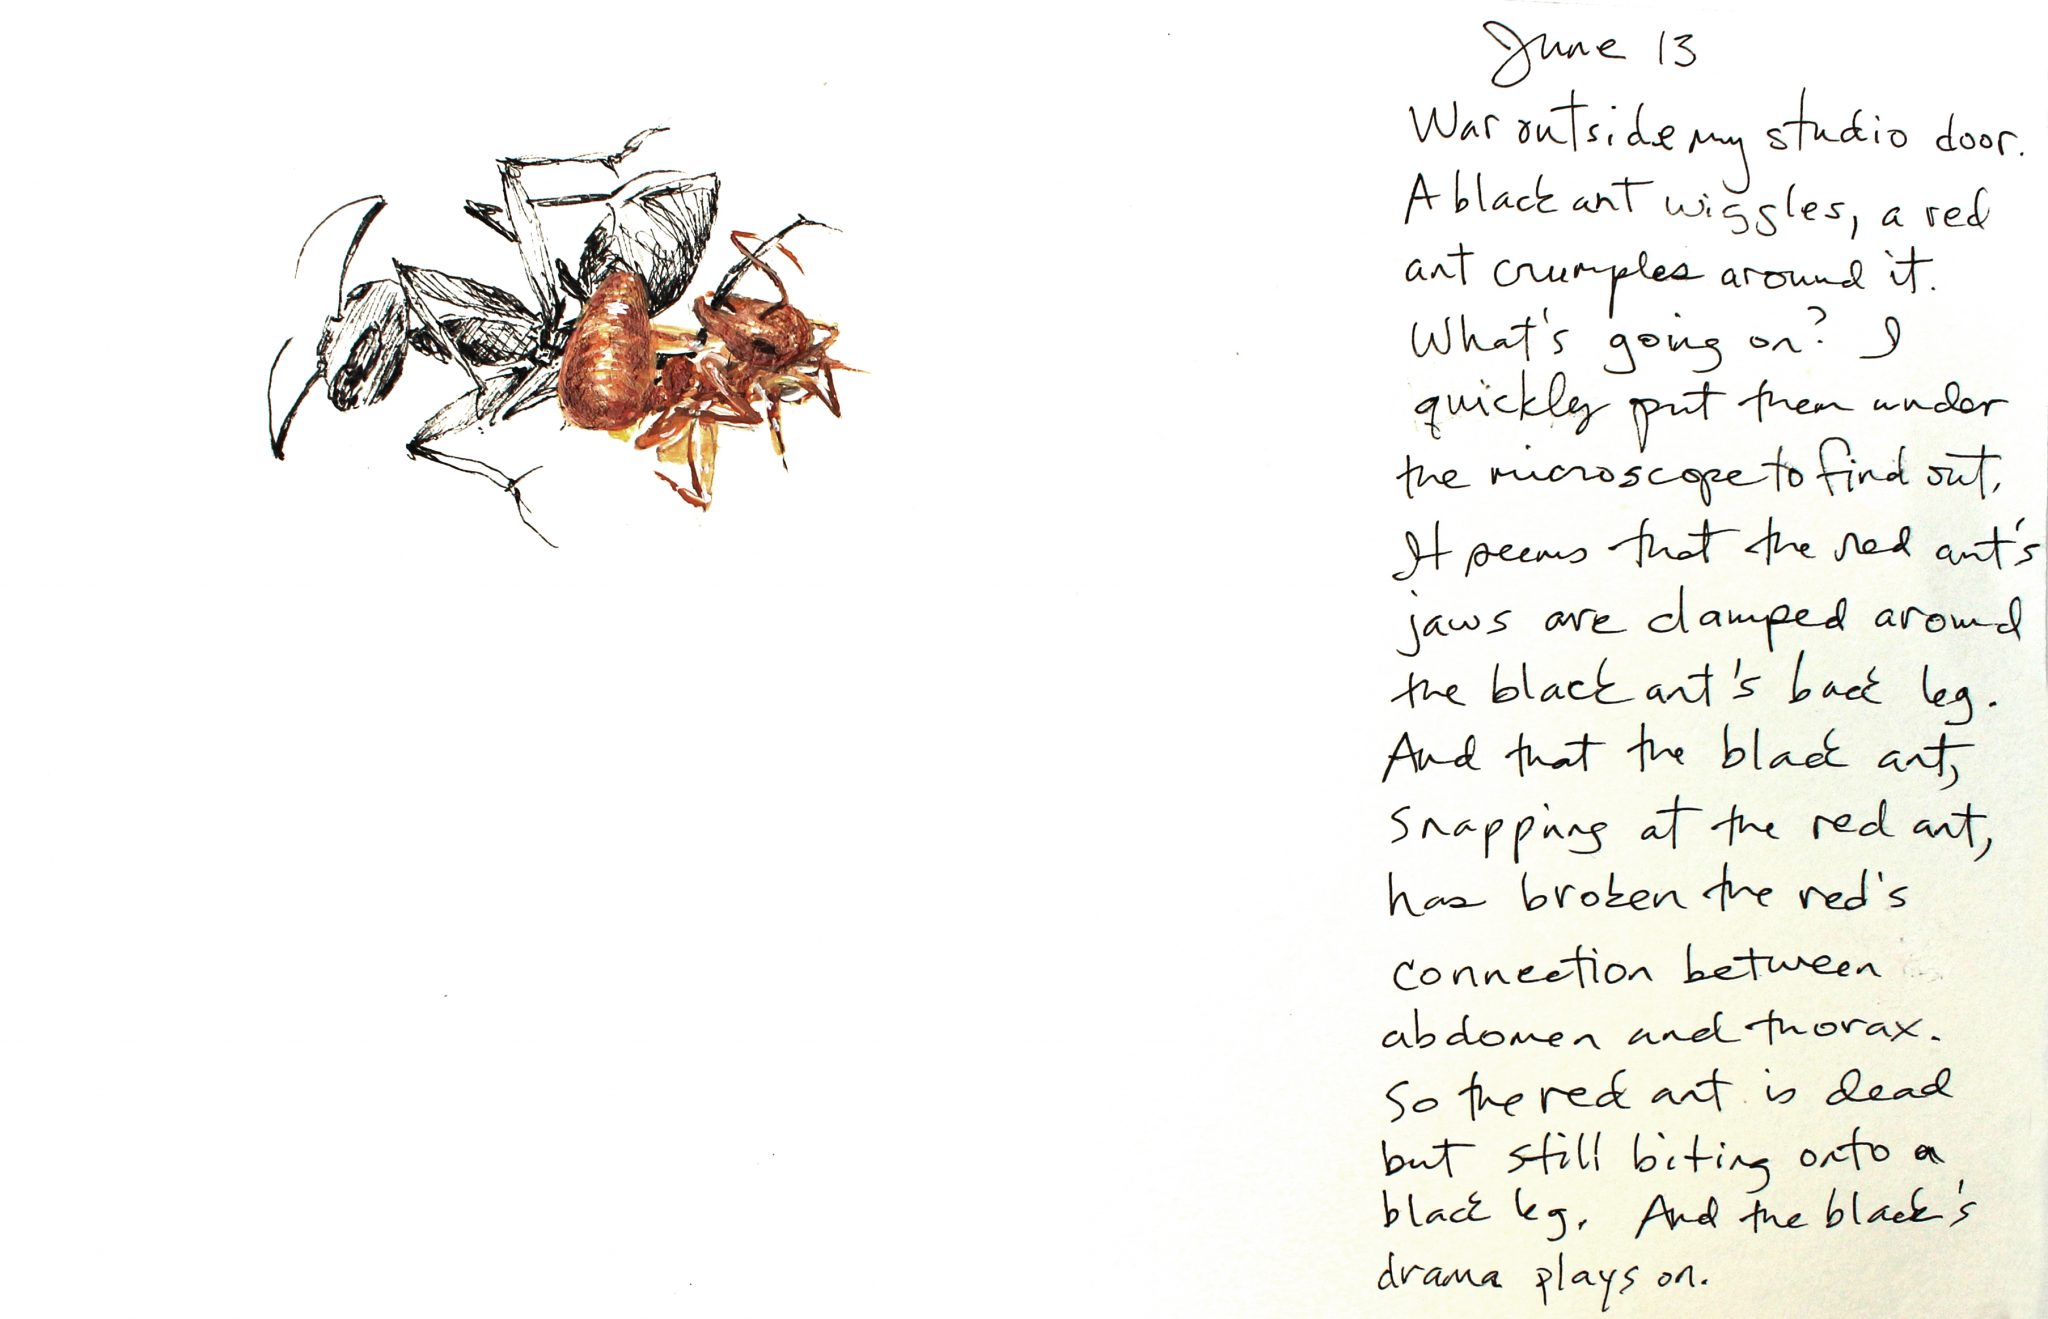 June 13
War outside my studio door.
A black ant wiggles, a red
ant crumples around it.
What's going on? I
quickly put them under
the microscope to find out.
It seems that the red ant's
jaws are clamped around
the black ant's back leg.
And that the black ant,
snapping at the red ant,
has broken the red's
connection between
abdomen and thorax.
So the red ant is dead
but still biting onto a
black leg. And the black's
drama plays on.